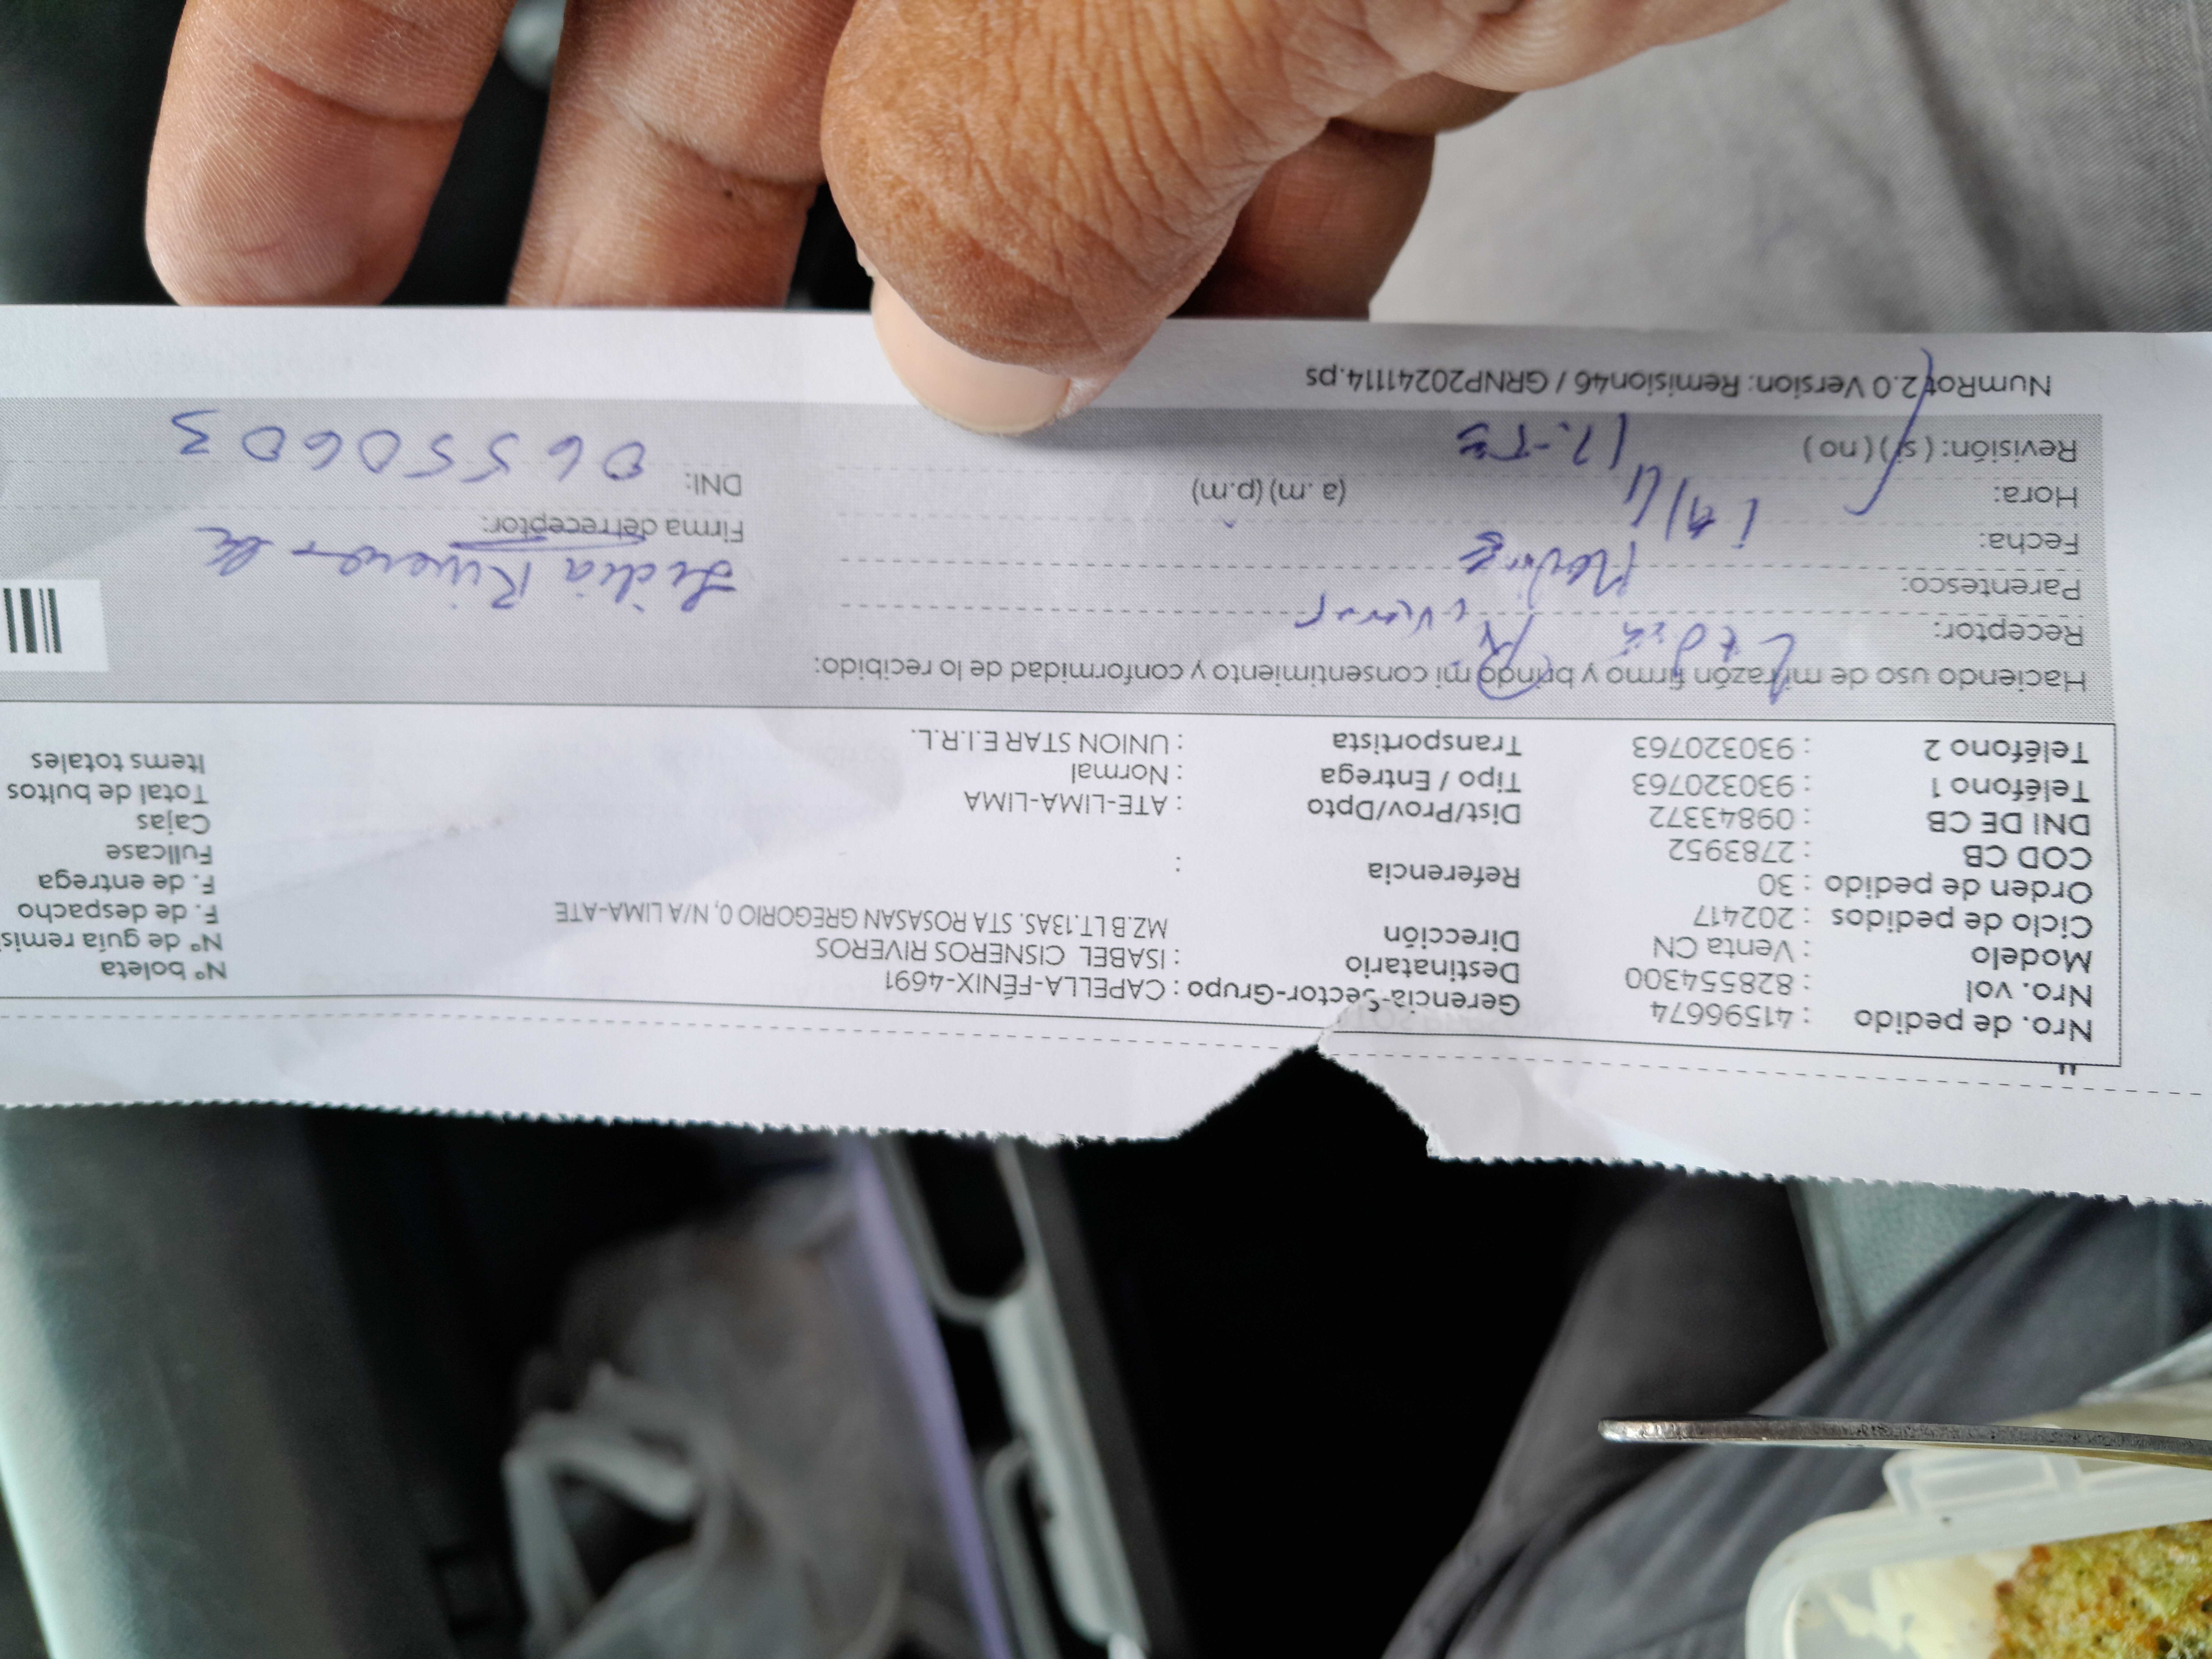 Nro. de pedido : 41596674 Gerencia-Sector-Grupo : CAPELLA-FÉNIX-4691 N° boleta
Nro. vol : 828554300 Destinatario : ISABEL CISNEROS RIVEROS N° de guía remisi
Modelo : Venta CN Dirección MZ.B LT.13AS. STA ROSASAN GREGORIO 0, N/A LIMA-ATE F. de despacho
Ciclo de pedidos : 202417 F. de entrega
Orden de pedido : 30 Referencia : Fullcase
COD CB : 2783952 Cajas
DNI DE CB : 09843372 Dist/Prov/Dpto : ATE-LIMA-LIMA Total de bultos
Teléfono 1 : 930320763 Tipo / Entrega : Normal Items totales
Teléfono 2 : 930320763 Transportista : UNION STAR E.I.R.L.
Haciendo uso de mi razón firmo y brindo mi consentimiento y conformidad de lo recibido:
Receptor: Lidia Riveros
Parentesco: Lidia Rivero
Fecha: Firma del receptor:
Hora: (a.m) (p.m) DNI: 06550603
Revisión: ( si ) ( no )
NumRot 2.0 Version: Remision46 / GRNP20241114.ps